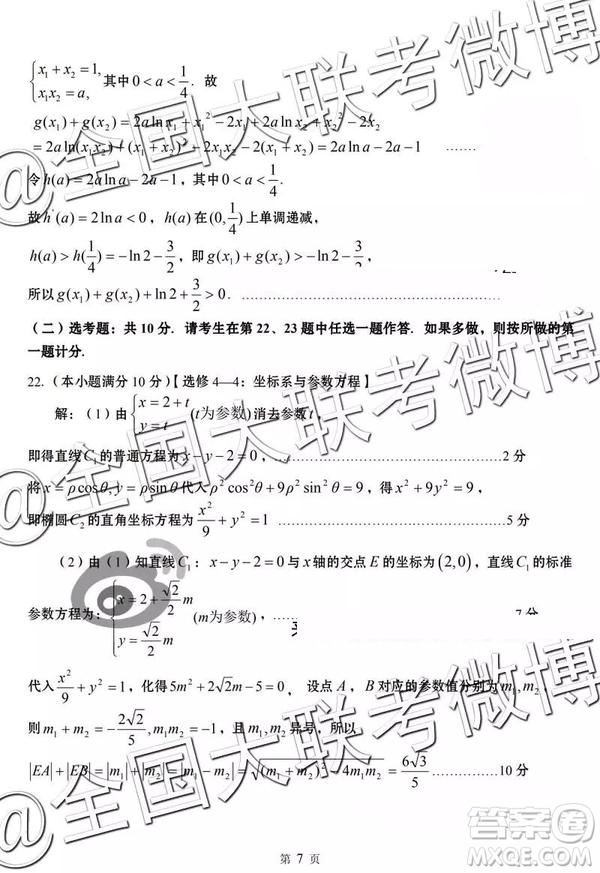 {x₁+x₂=1, x₁x₂=a, 其中0<a<1/4. 故
g(x₁)+g(x₂)=2a ln x₁+x₁²-2x₁+2a ln x₂+x₂²-2x₂
=2a ln(x₁x₂)+(x₁+x₂)²-2x₁x₂-2(x₁+x₂)=2a ln a-2a-1 .......
令h(a)=2a ln a-2a-1, 其中0<a<1/4.
故h'(a)=2ln a<0, h(a)在(0,1/4)上单调递减,
h(a)>h(1/4)=-ln2-3/2, 即g(x₁)+g(x₂)>-ln2-3/2,
所以g(x₁)+g(x₂)+ln2+3/2>0.
(二)选考题:共10分. 请考生在第22、23题中任选一题作答. 如果多做,则按所做的第
一题计分.
22.(本小题满分10分)【选修4—4:坐标系与参数方程】
解:(1)由{x=2+t y=t (t为参数)消去参数t,
即得直线C₁的普通方程为x-y-2=0, ..............2分
将x=ρcosθ,y=ρsinθ代入ρ²cos²θ+9ρ²sin²θ=9, 得x²+9y²=9,
即椭圆C₂的直角坐标方程为x²/9+y²=1 ..............5分
(2)由(1)知直线C₁:x-y-2=0与x轴的交点E的坐标为(2,0),直线C₁的标准
参数方程为:{x=2+√2/2 m y=√2/2 m (m为参数) 7分
代入x²/9+y²=1,化得5m²+2√2m-5=0, 设点A,B对应的参数值分别为m₁,m₂
则m₁+m₂=-2√2/5,m₁m₂=-1,且m₁,m₂异号,所以
|EA|+|EB|=|m₁|+|m₂|=|m₁-m₂|=√((m₁+m₂)²-4m₁m₂)=6√3/5 ..............10分
第 7 页
@全国大联考微博
@全国大联考微博
@全国大联考微博
答案圈
MXQE.COM